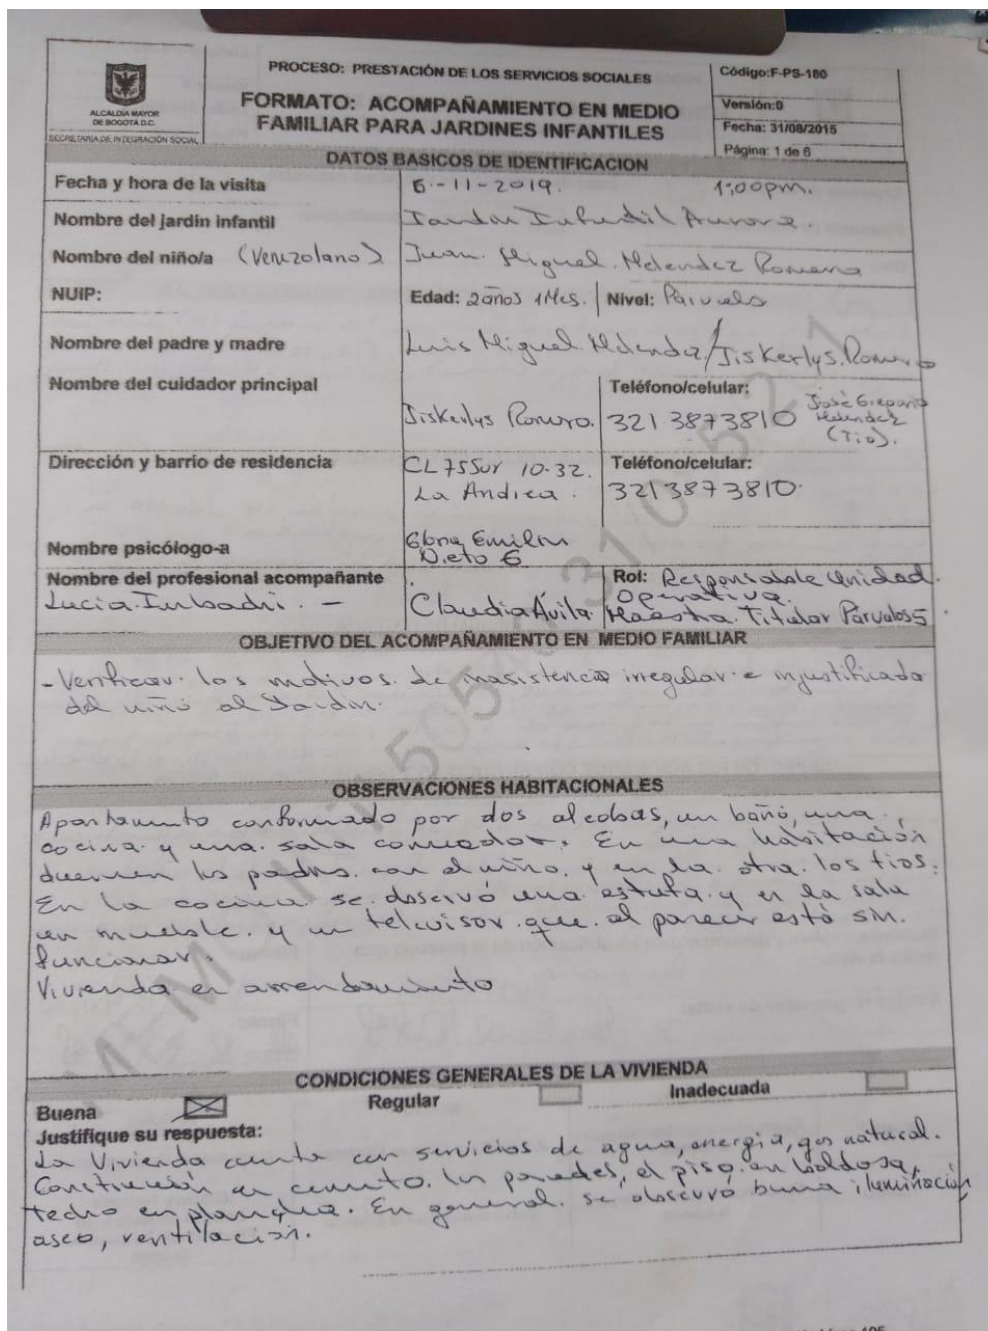 ALCALDÍA MAYOR
DE BOGOTÁ D.C.
SECRETARÍA DE INTEGRACIÓN SOCIAL
PROCESO: PRESTACIÓN DE LOS SERVICIOS SOCIALES
FORMATO: ACOMPAÑAMIENTO EN MEDIO
FAMILIAR PARA JARDINES INFANTILES
Código:F-PS-180
Versión:0
Fecha: 31/08/2015
Página: 1 de 6
DATOS BASICOS DE IDENTIFICACION
Fecha y hora de la visita 6-11-2019. 1:00pm.
Nombre del jardín infantil Jardín Infantil Aurora.
Nombre del niño/a (Venezolano) Juan Miguel Melendez Romero
NUIP: Edad: 2 años 1 Mes. Nivel: Párvulo
Nombre del padre y madre Luis Miguel Melendez/Jiskerlys Romero
Nombre del cuidador principal Jiskerlys Romero.
Teléfono/celular:
321 3873810 José Gregorio
Melendez
(Tío).
Dirección y barrio de residencia CL 75 Sur 10-32.
La Andrea.
Teléfono/celular:
3213873810.
Nombre psicólogo-a Emilia
Nieto G.
Nombre del profesional acompañante
Lucia - Claudia Ávila.
Rol: Responsable Unidad
Operativa.
Maestra Titular Párvulos 5
OBJETIVO DEL ACOMPAÑAMIENTO EN MEDIO FAMILIAR
- Verificar los motivos de inasistencia irregular e injustificada
del niño al Jardín.
OBSERVACIONES HABITACIONALES
Apartamento conformado por dos alcobas, un baño, una
cocina y una sala comedor. En una habitación
duermen los padres con el niño y en la otra los tíos.
En la cocina se observó una estufa y en la sala
un mueble y un televisor que al parecer está sin
funcionar.
Vivienda en arrendamiento
CONDICIONES GENERALES DE LA VIVIENDA
Buena Regular Inadecuada
Justifique su respuesta:
La Vivienda cuenta con servicios de agua, energía, gas natural.
Construcción en cemento. las paredes, el piso en baldosa,
techo en plancha. En general se observó buena iluminación
aseo, ventilación.